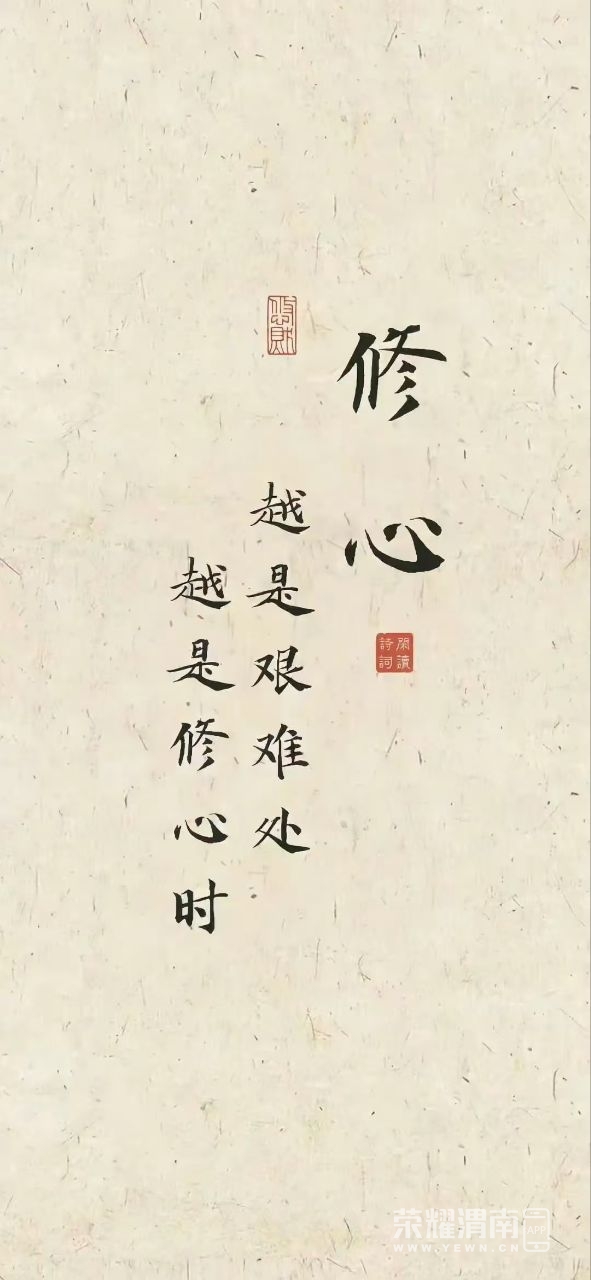 修心
越是艰难处
越是修心时
閑讀
詩詞
荣耀渭南
APP
WWW.YEWN.CN